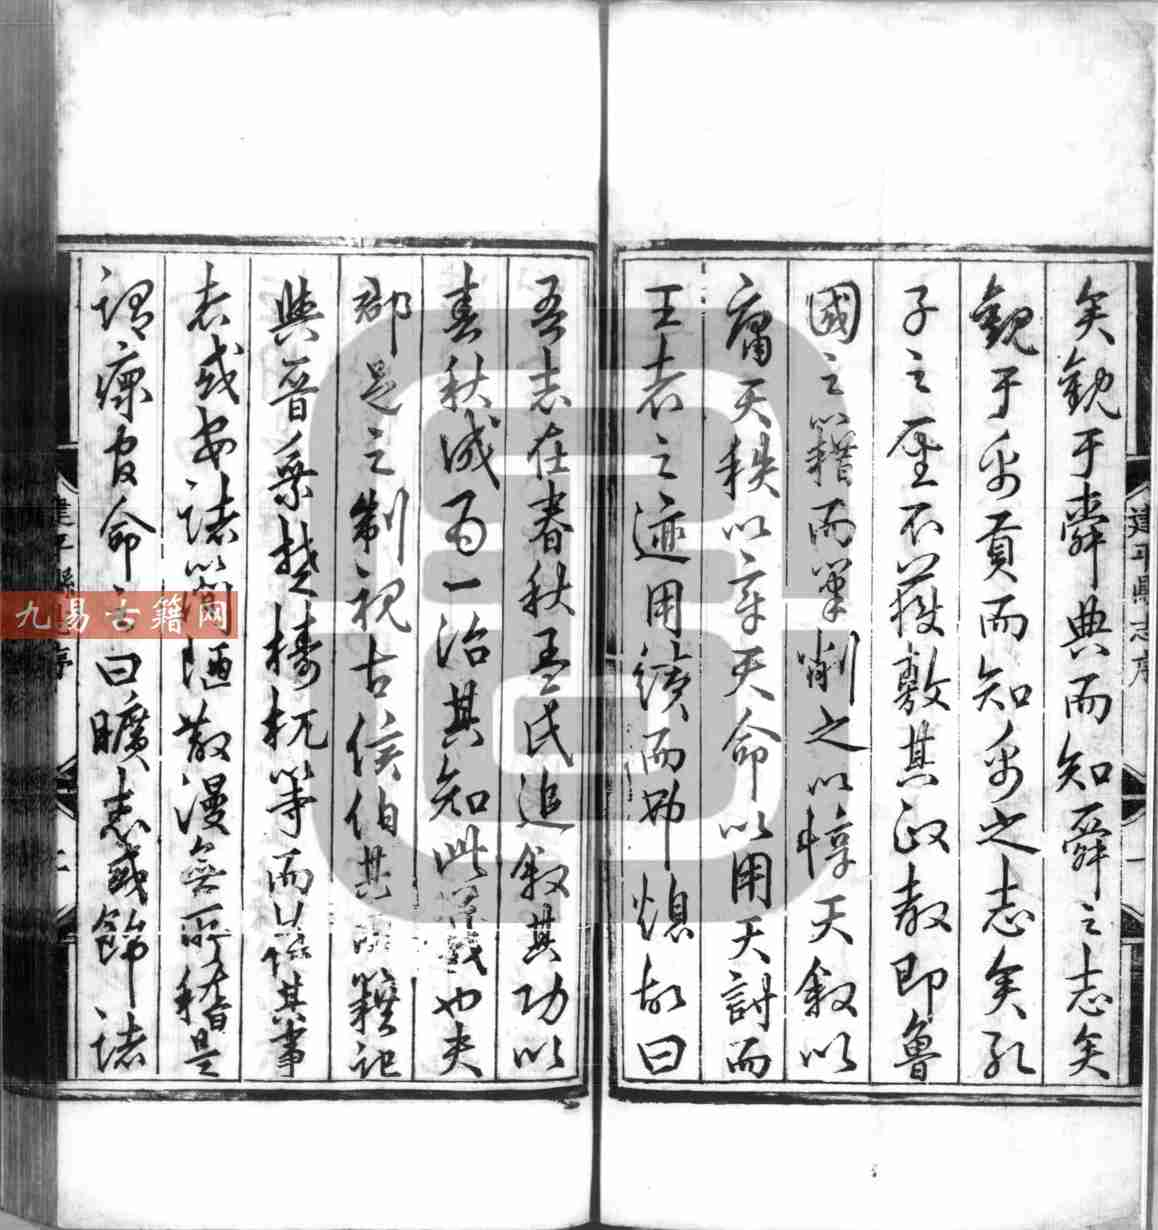 矣觀于舜典而知舜之志矣
觀于禹貢而知禹之志矣孔
子之聖不獲敷其政教即魯
國之籍而筆削之以惇天叙以
庸天秩以章天命以用天討而
王者之迹用續而弗熄故曰
吾志在春秋孟氏追叙其功以
春秋成為一治其知此義也夫
郡邑之制視古侯伯其籍記
與晉乘楚檮杌等而其事
者或安諸簡陋散漫無所稽是
謂瘝官命之曰曠志或飾諸
建平縣志序
一
建平縣志序
九易古籍网